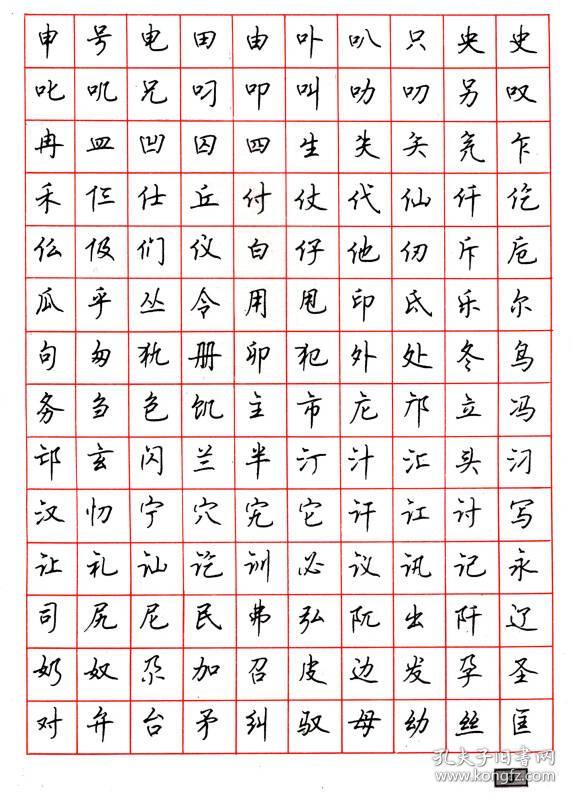 申号电田由卟叭只央史
叱叽兄叼叩叫叻叨另叹
冉皿凹囚四生失矢氕乍
禾仨仕丘付仗代仙仟仡
仫伋们仪白仔他仞斥卮
瓜乎丛令用甩印氐乐尔
句匆犰册卯犯外处冬鸟
务刍包饥主市庀邝立冯
邙玄闪兰半汀汁汇头汈
汉忉宁穴宄它讦讧讨写
让礼讪讫训必议讯记永
司尻尼民弗弘阢出阡辽
奶奴尕加召皮边发孕圣
对弁台矛纠驭母幼丝匡
孔夫子旧书网
www.kongfz.com